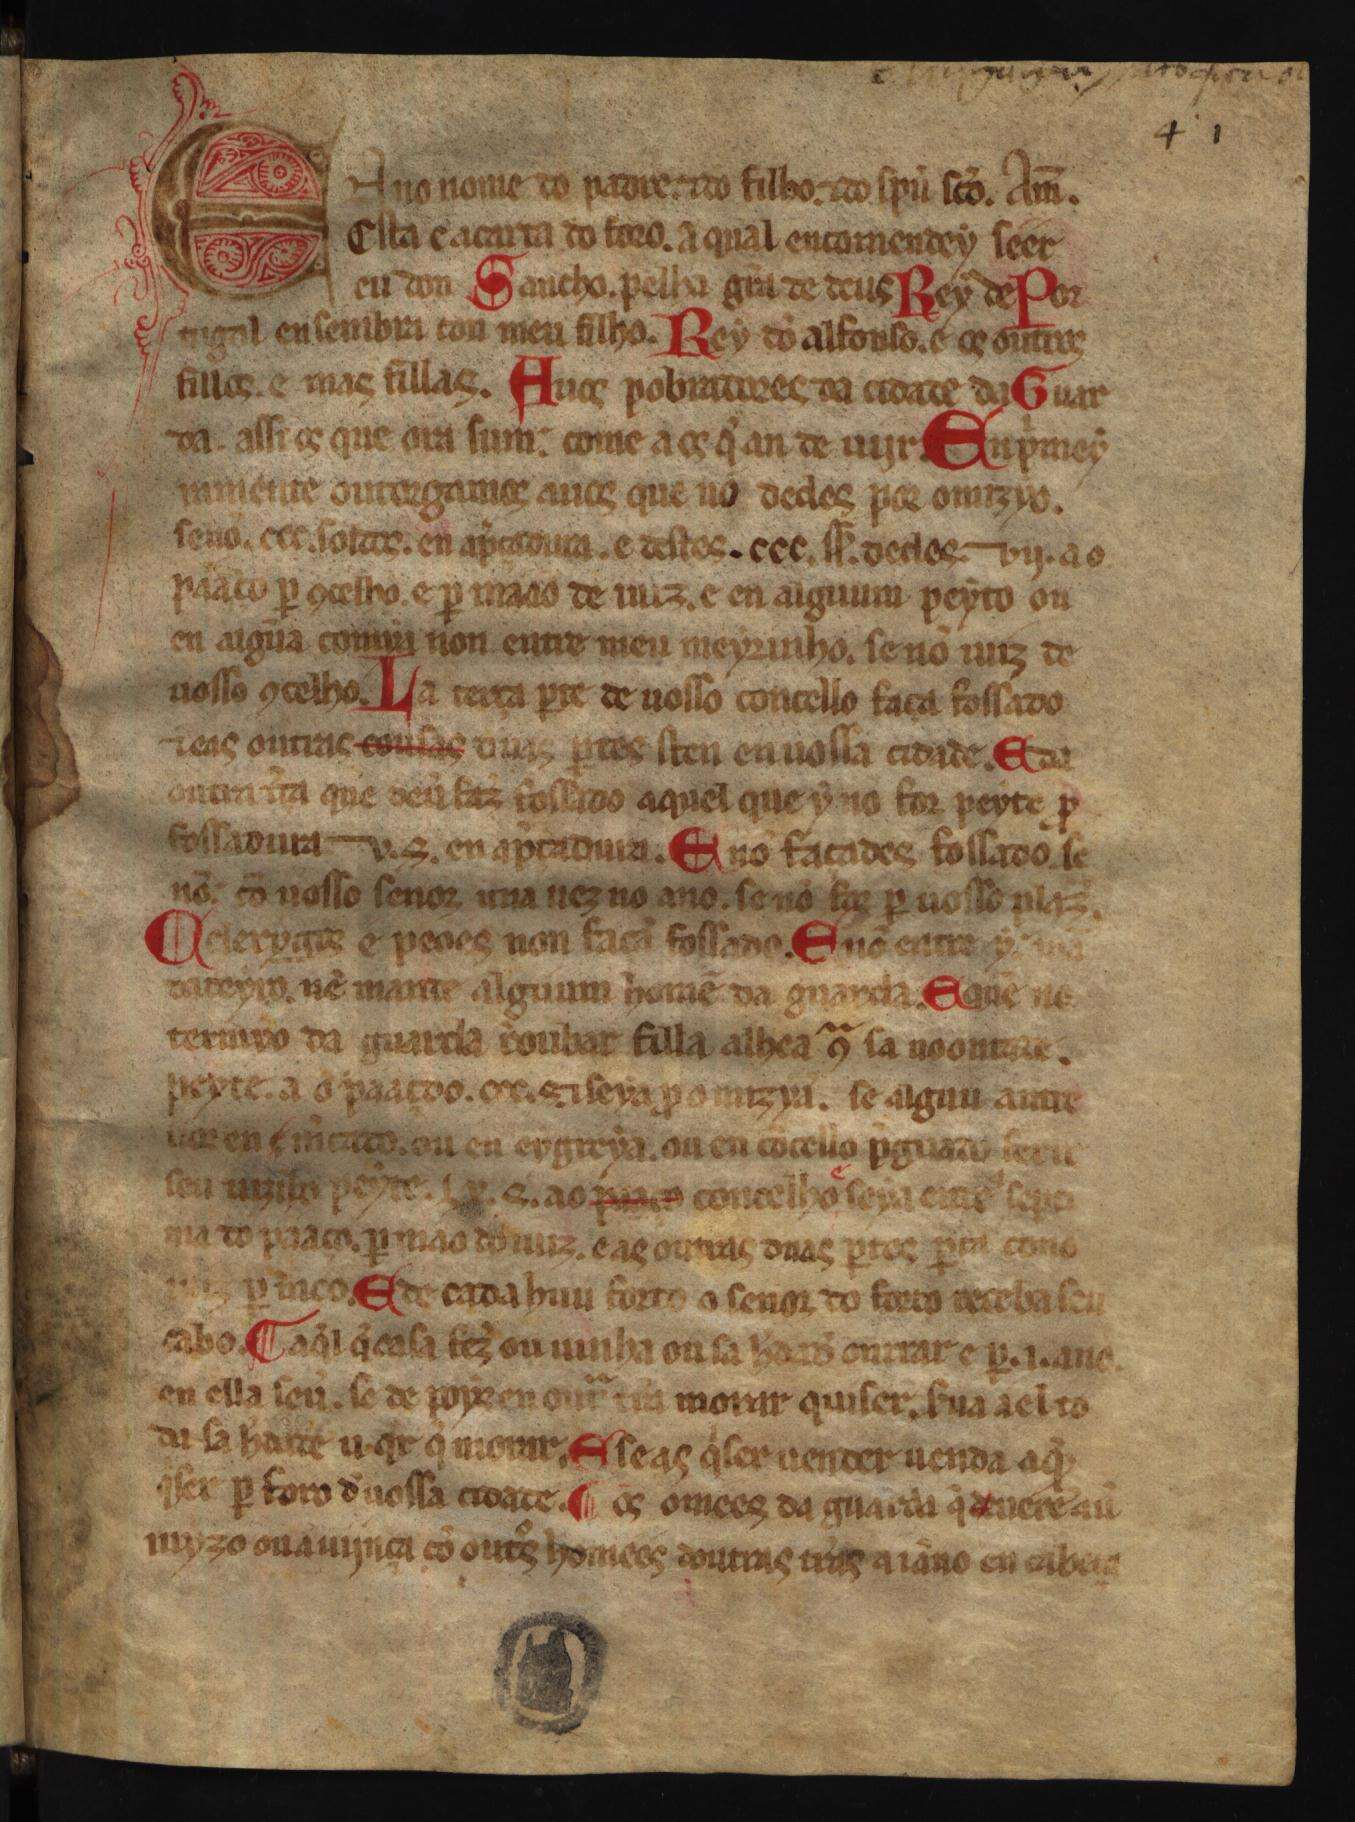 4 1
EN no nome do padre. ⁊ do filho. ⁊ do spũ sc̃o. Am̃.
Esta e a carta do foro. a qual encomendey seer
eu don Sancho. pella gr̃a de deus Rey de Por
tugal ensembra con meu filho. Rey dõ alfonso. e os outros
fillos. e mas fillas. A uos pobradores da cidade da Guar
da. assi os que ora sum. come a os q̃ an de uijr. En p̃mey
ramente outorgamos auos que nõ dedes por omizyo.
senõ. ccc. soldos. en ap̃çadura. e destes. ccc. ss̃. dedes vij. ao
paaço p̱ ꝯcelho. e p̱ mãao de iuiz. e en alguum peyto ou
en algũa comya non entre meu meyrinho. se nõ iuiz de
uosso ꝯcelho. La terça p̱te de uosso concello faça fossado
⁊ eas outras cousas duas p̱tes sten en uossa cidade. E da
outra t̃ra que deũ faz̃ fossado aquel que y nõ for peyte p̱
fossadura v. s. en ap̃çadura. E nõ façades fossado se
nõ. cõ uosso senor una uez no ano. se nõ for p̱ uosso plaz̃.
Clerygos e peoes non façã fossado. E nõ entre y mã
dadeyro. nẽ mande alguum homẽ da guarda. E quẽ no
termho da guarda roubar filla alhea ꝯ̃ sa uoontade.
peyte. a o paaçoo. ccc. s. ⁊ seya p̱ omizyã. se alguu ante
uor en m̃cado. ou en eygreya. ou en cõcello p̃guado ferir
seu uizĩho peyte. lx. s. ao paaço concelho e seya ende sepe
ma do paaço. p̱ mao do iuiz. e as outras duas p̱tes
p̱ E de cada huu forto o senor do forto receba seu
cabo. aq̃l q̃ casa fez̃ ou uinha ou sa h̃dad̃ onrrar e p̱. 1. ano.
en ella seu. se de poys en out̃ t̃ra morar quiser. s̃ua a el to
da sa h̃dade u q̃r q̃ morar. E se as q̃ser uender uenda a q̃
q̃ser p̱ foro d̃ uossa cidade. Os omees da guarda q̃ deuerẽ au
uiyzo ou auijnça cõ out̃s homees doutras t̃ras